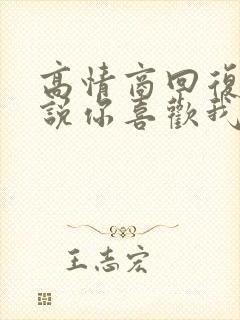 高情商回復
說你喜歡我
王志宏